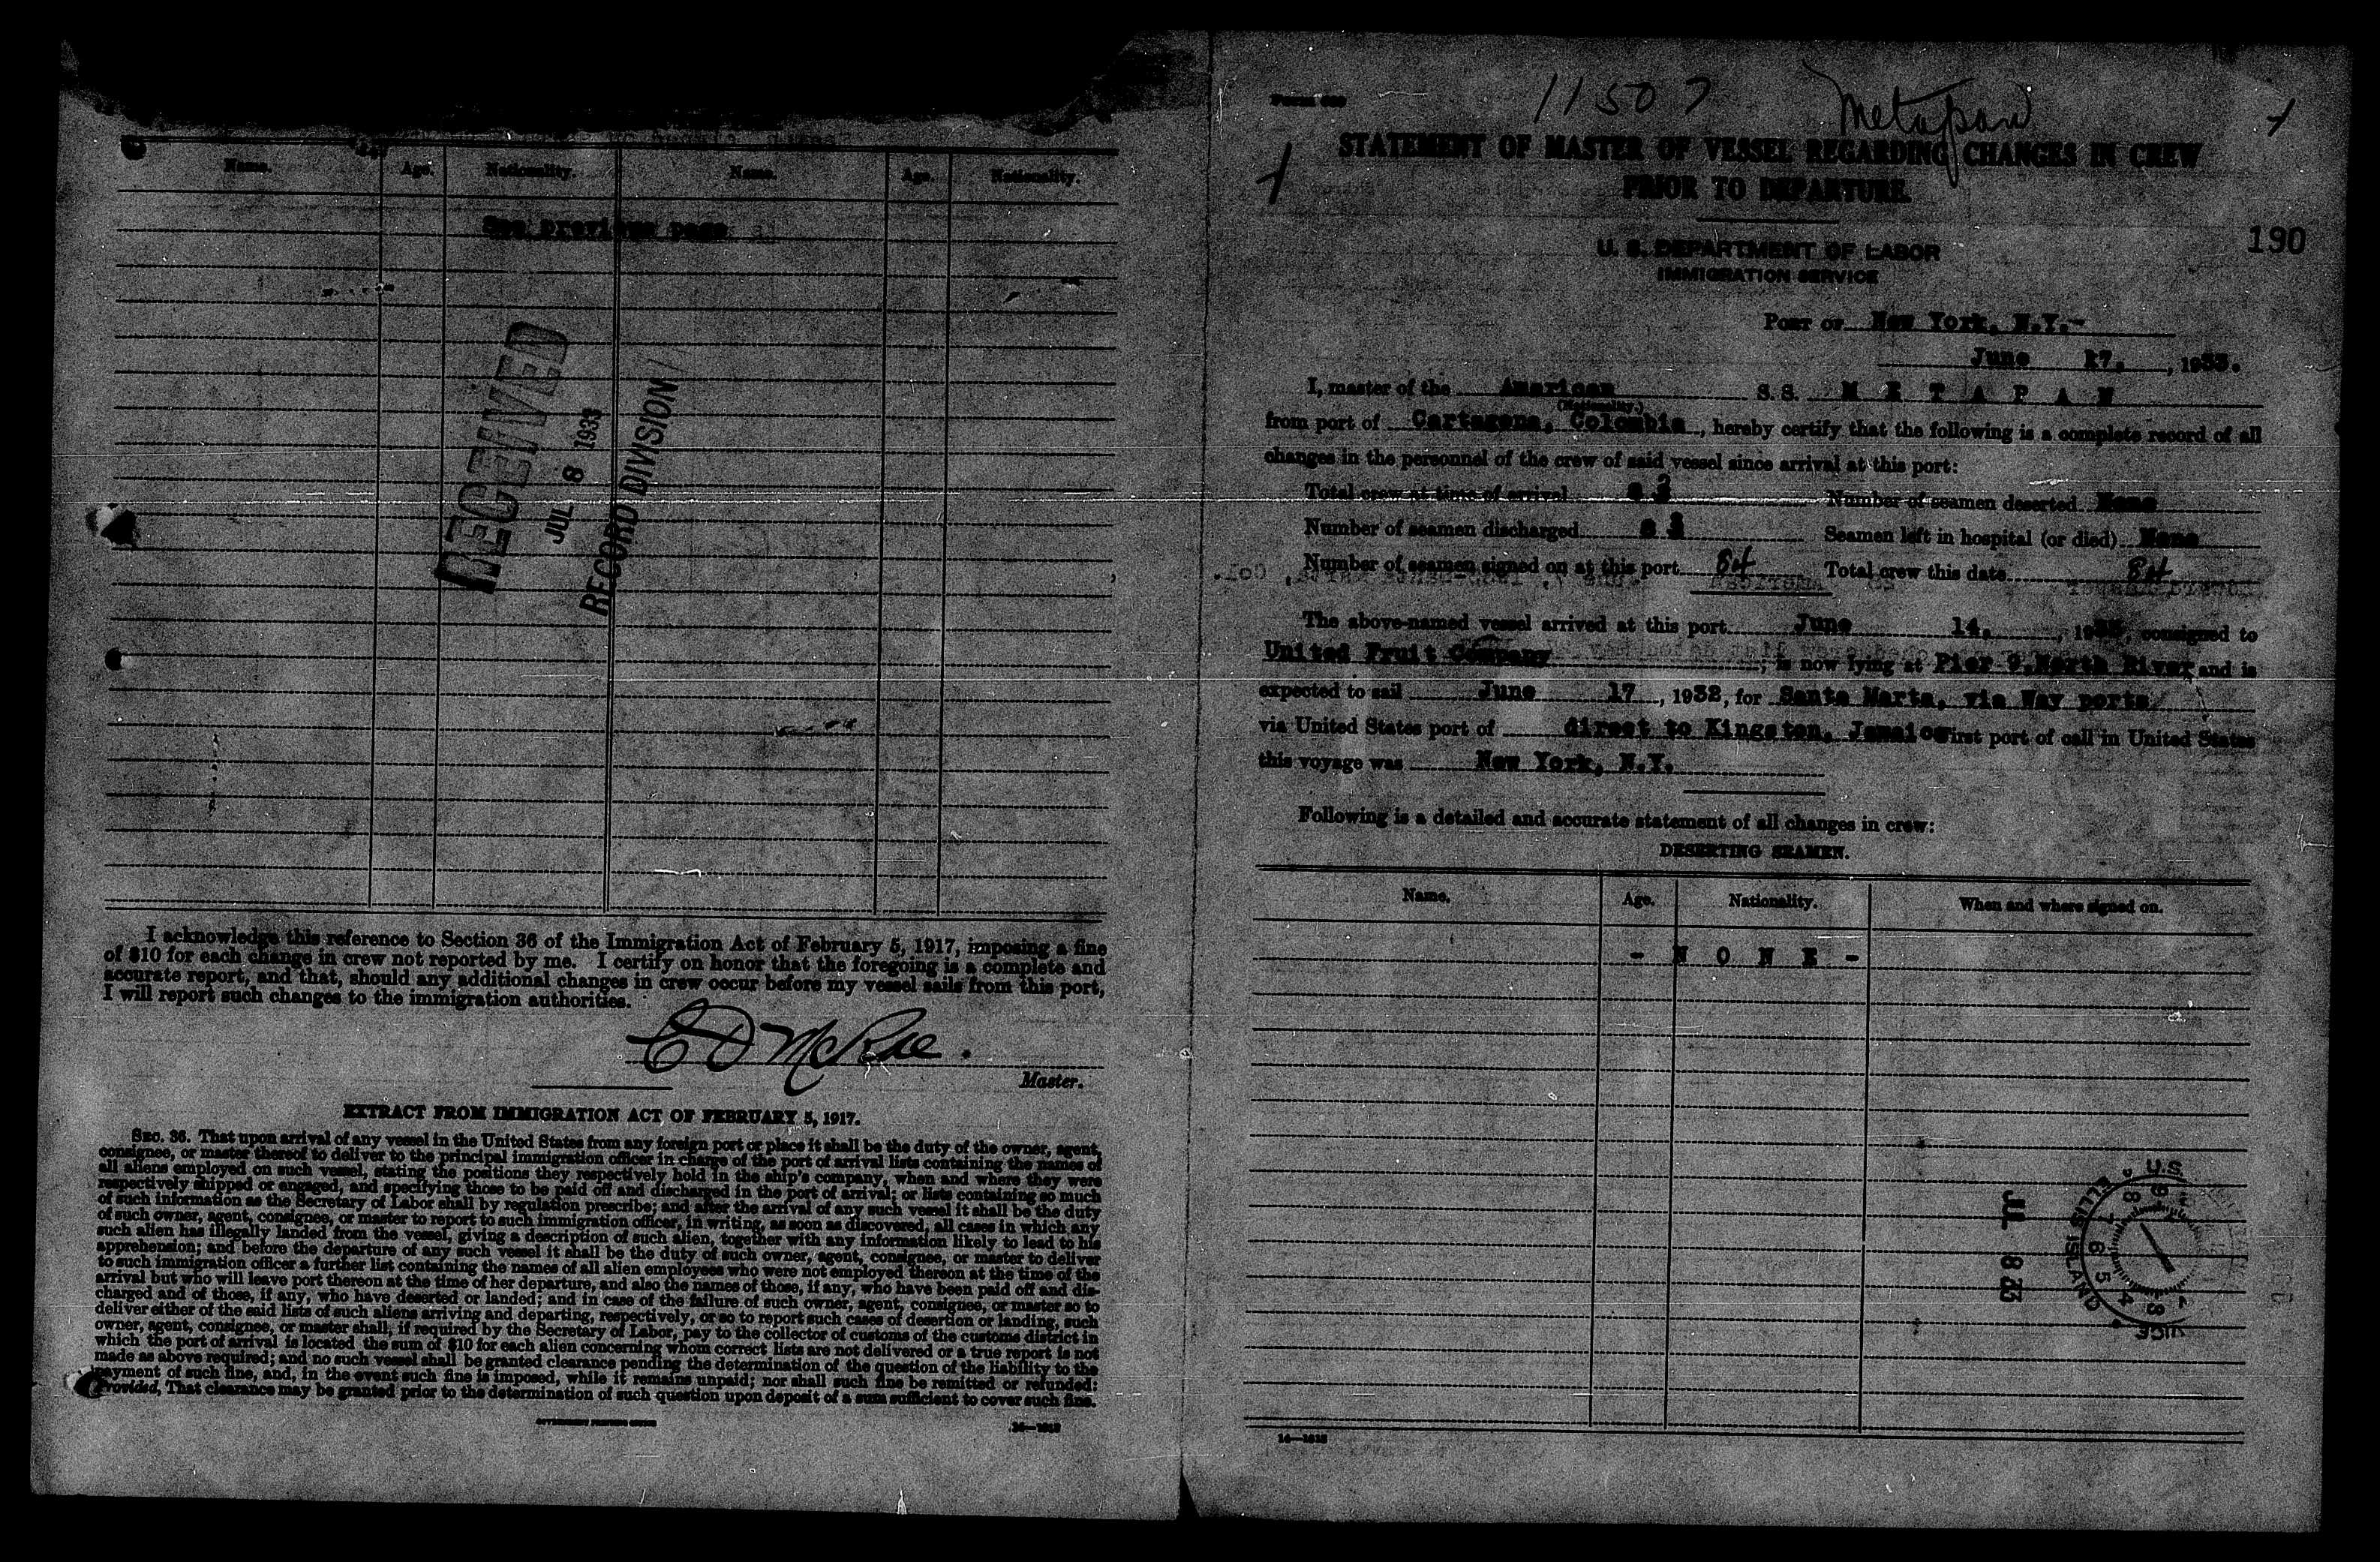 Name. Age. Nationality. Name. Age. Nationality.
See previous page
RECEIVED
JUL 8 1933
RECORD DIVISION
I acknowledge this reference to Section 36 of the Immigration Act of February 5, 1917, imposing a fine
of $10 for each change in crew not reported by me. I certify on honor that the foregoing is a complete and
accurate report, and that, should any additional changes in crew occur before my vessel sails from this port,
I will report such changes to the immigration authorities.
C D McRae.
Master.
EXTRACT FROM IMMIGRATION ACT OF FEBRUARY 5, 1917.
SEC. 36. That upon arrival of any vessel in the United States from any foreign port or place it shall be the duty of the owner, agent,
consignee, or master thereof to deliver to the principal immigration officer in charge of the port of arrival lists containing the names of
all aliens employed on such vessel, stating the positions they respectively hold in the ship's company, when and where they were
respectively shipped or engaged, and specifying those to be paid off and discharged in the port of arrival; or lists containing so much
of such information as the Secretary of Labor shall by regulation prescribe; and after the arrival of any such vessel it shall be the duty
of such owner, agent, consignee, or master to report to such immigration officer, in writing, as soon as discovered, all cases in which any
such alien has illegally landed from the vessel, giving a description of such alien, together with any information likely to lead to his
apprehension; and before the departure of any such vessel it shall be the duty of such owner, agent, consignee, or master to deliver
to such immigration officer a further list containing the names of all alien employees who were not employed thereon at the time of the
arrival but who will leave port thereon at the time of her departure, and also the names of those, if any, who have been paid off and dis-
charged and of those, if any, who have deserted or landed; and in case of the failure of such owner, agent, consignee, or master so to
deliver either of the said lists of such aliens arriving and departing, respectively, or so to report such cases of desertion or landing, such
owner, agent, consignee, or master shall, if required by the Secretary of Labor, pay to the collector of customs of the customs district in
which the port of arrival is located the sum of $10 for each alien concerning whom correct lists are not delivered or a true report is not
made as above required; and no such vessel shall be granted clearance pending the determination of the question of the liability to the
payment of such fine, and, in the event such fine is imposed, while it remains unpaid; nor shall such fine be remitted or refunded:
Provided, That clearance may be granted prior to the determination of such question upon deposit of a sum sufficient to cover such fine.
GOVERNMENT PRINTING OFFICE
Form
11507 Metapan
STATEMENT OF MASTER OF VESSEL REGARDING CHANGES IN CREW
PRIOR TO DEPARTURE
U. S. DEPARTMENT OF LABOR
IMMIGRATION SERVICE
190
PORT OF New York, N.Y.-
June 17, , 1933.
I, master of the American S. S. M E T A P A N
(Nationality.)
from port of Cartagena, Colombia, hereby certify that the following is a complete record of all
changes in the personnel of the crew of said vessel since arrival at this port:
Total crew at time of arrival Number of seamen deserted None
Number of seamen discharged Seamen left in hospital (or died) None
Number of seamen signed on at this port 84 Total crew this date 84
The above-named vessel arrived at this port June 14, , consigned to
United Fruit Company ; is now lying at Pier 9, North River and is
expected to sail June 17 , 1932, for Santa Marta, via Way ports
via United States port of direct to Kingston, Jamaica First port of call in United States
this voyage was New York, N.Y.
Following is a detailed and accurate statement of all changes in crew:
DESERTING SEAMEN.
Name. Age. Nationality. When and where signed on.
- N O N E -
JUL 8 33
U.S.
ELLIS ISLAND